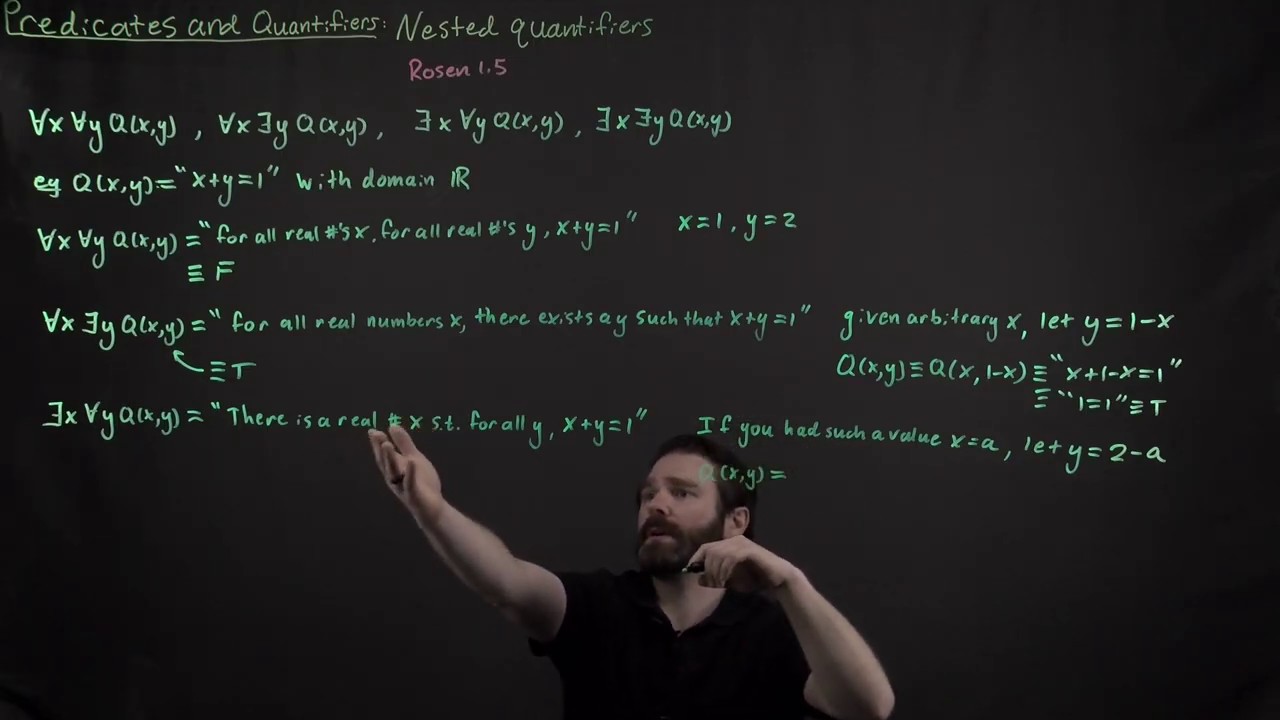 Predicates and Quantifiers: Nested quantifiers
Rosen 1.5
∀x ∀y Q(x,y) , ∀x ∃y Q(x,y) , ∃x ∀y Q(x,y) , ∃x ∃y Q(x,y)
eg Q(x,y) = "x+y=1" with domain ℝ
∀x ∀y Q(x,y) = "for all real #'s x, for all real #'s y, x+y=1" x=1, y=2
≡ F
∀x ∃y Q(x,y) = "for all real numbers x, there exists a y such that x+y=1" given arbitrary x, let y=1-x
≡T
Q(x,y) ≡ Q(x, 1-x) ≡ "x+1-x=1"
≡ "1=1" ≡ T
∃x ∀y Q(x,y) = "There is a real # x s.t. for all y, x+y=1" If you had such a value x=a, let y=2-a
Q(x,y) =